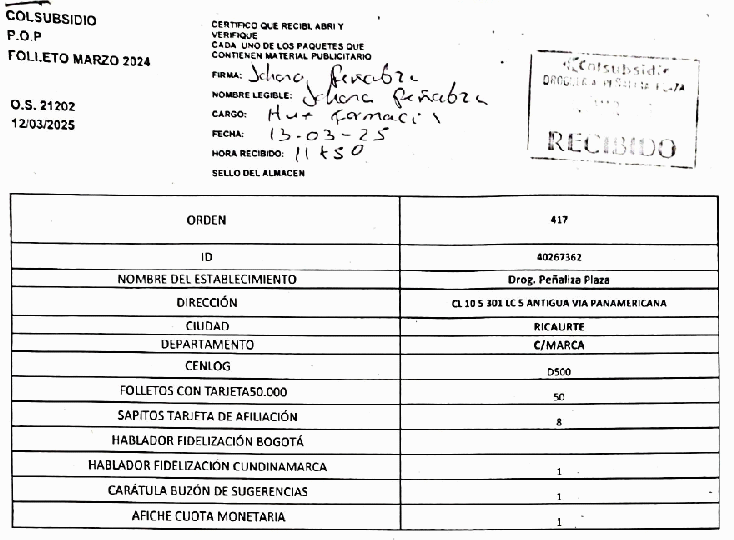 COLSUBSIDIO
P.O.P
FOLLETO MARZO 2024
O.S. 21202
12/03/2025
CERTIFICO QUE RECIBI, ABRI Y
VERIFIQUE
CADA UNO DE LOS PAQUETES QUE
CONTIENEN MATERIAL PUBLICITARIO
FIRMA: Johana
NOMBRE LEGIBLE: Johana
CARGO:
FECHA: 13-03-25
HORA RECIBIDO: 11:50
SELLO DEL ALMACEN
Colsubsidio
DROGUERIA PEÑALIZA PLAZA
RECIBIDO
ORDEN 417
ID 40267362
NOMBRE DEL ESTABLECIMIENTO Drog. Peñaliza Plaza
DIRECCIÓN CL 10 5 301 LC 5 ANTIGUA VIA PANAMERICANA
CIUDAD RICAURTE
DEPARTAMENTO C/MARCA
CENLOG D500
FOLLETOS CON TARJETA50.000 50
SAPITOS TARJETA DE AFILIACIÓN 8
HABLADOR FIDELIZACIÓN BOGOTÁ
HABLADOR FIDELIZACIÓN CUNDINAMARCA 1
CARÁTULA BUZÓN DE SUGERENCIAS 1
AFICHE CUOTA MONETARIA 1